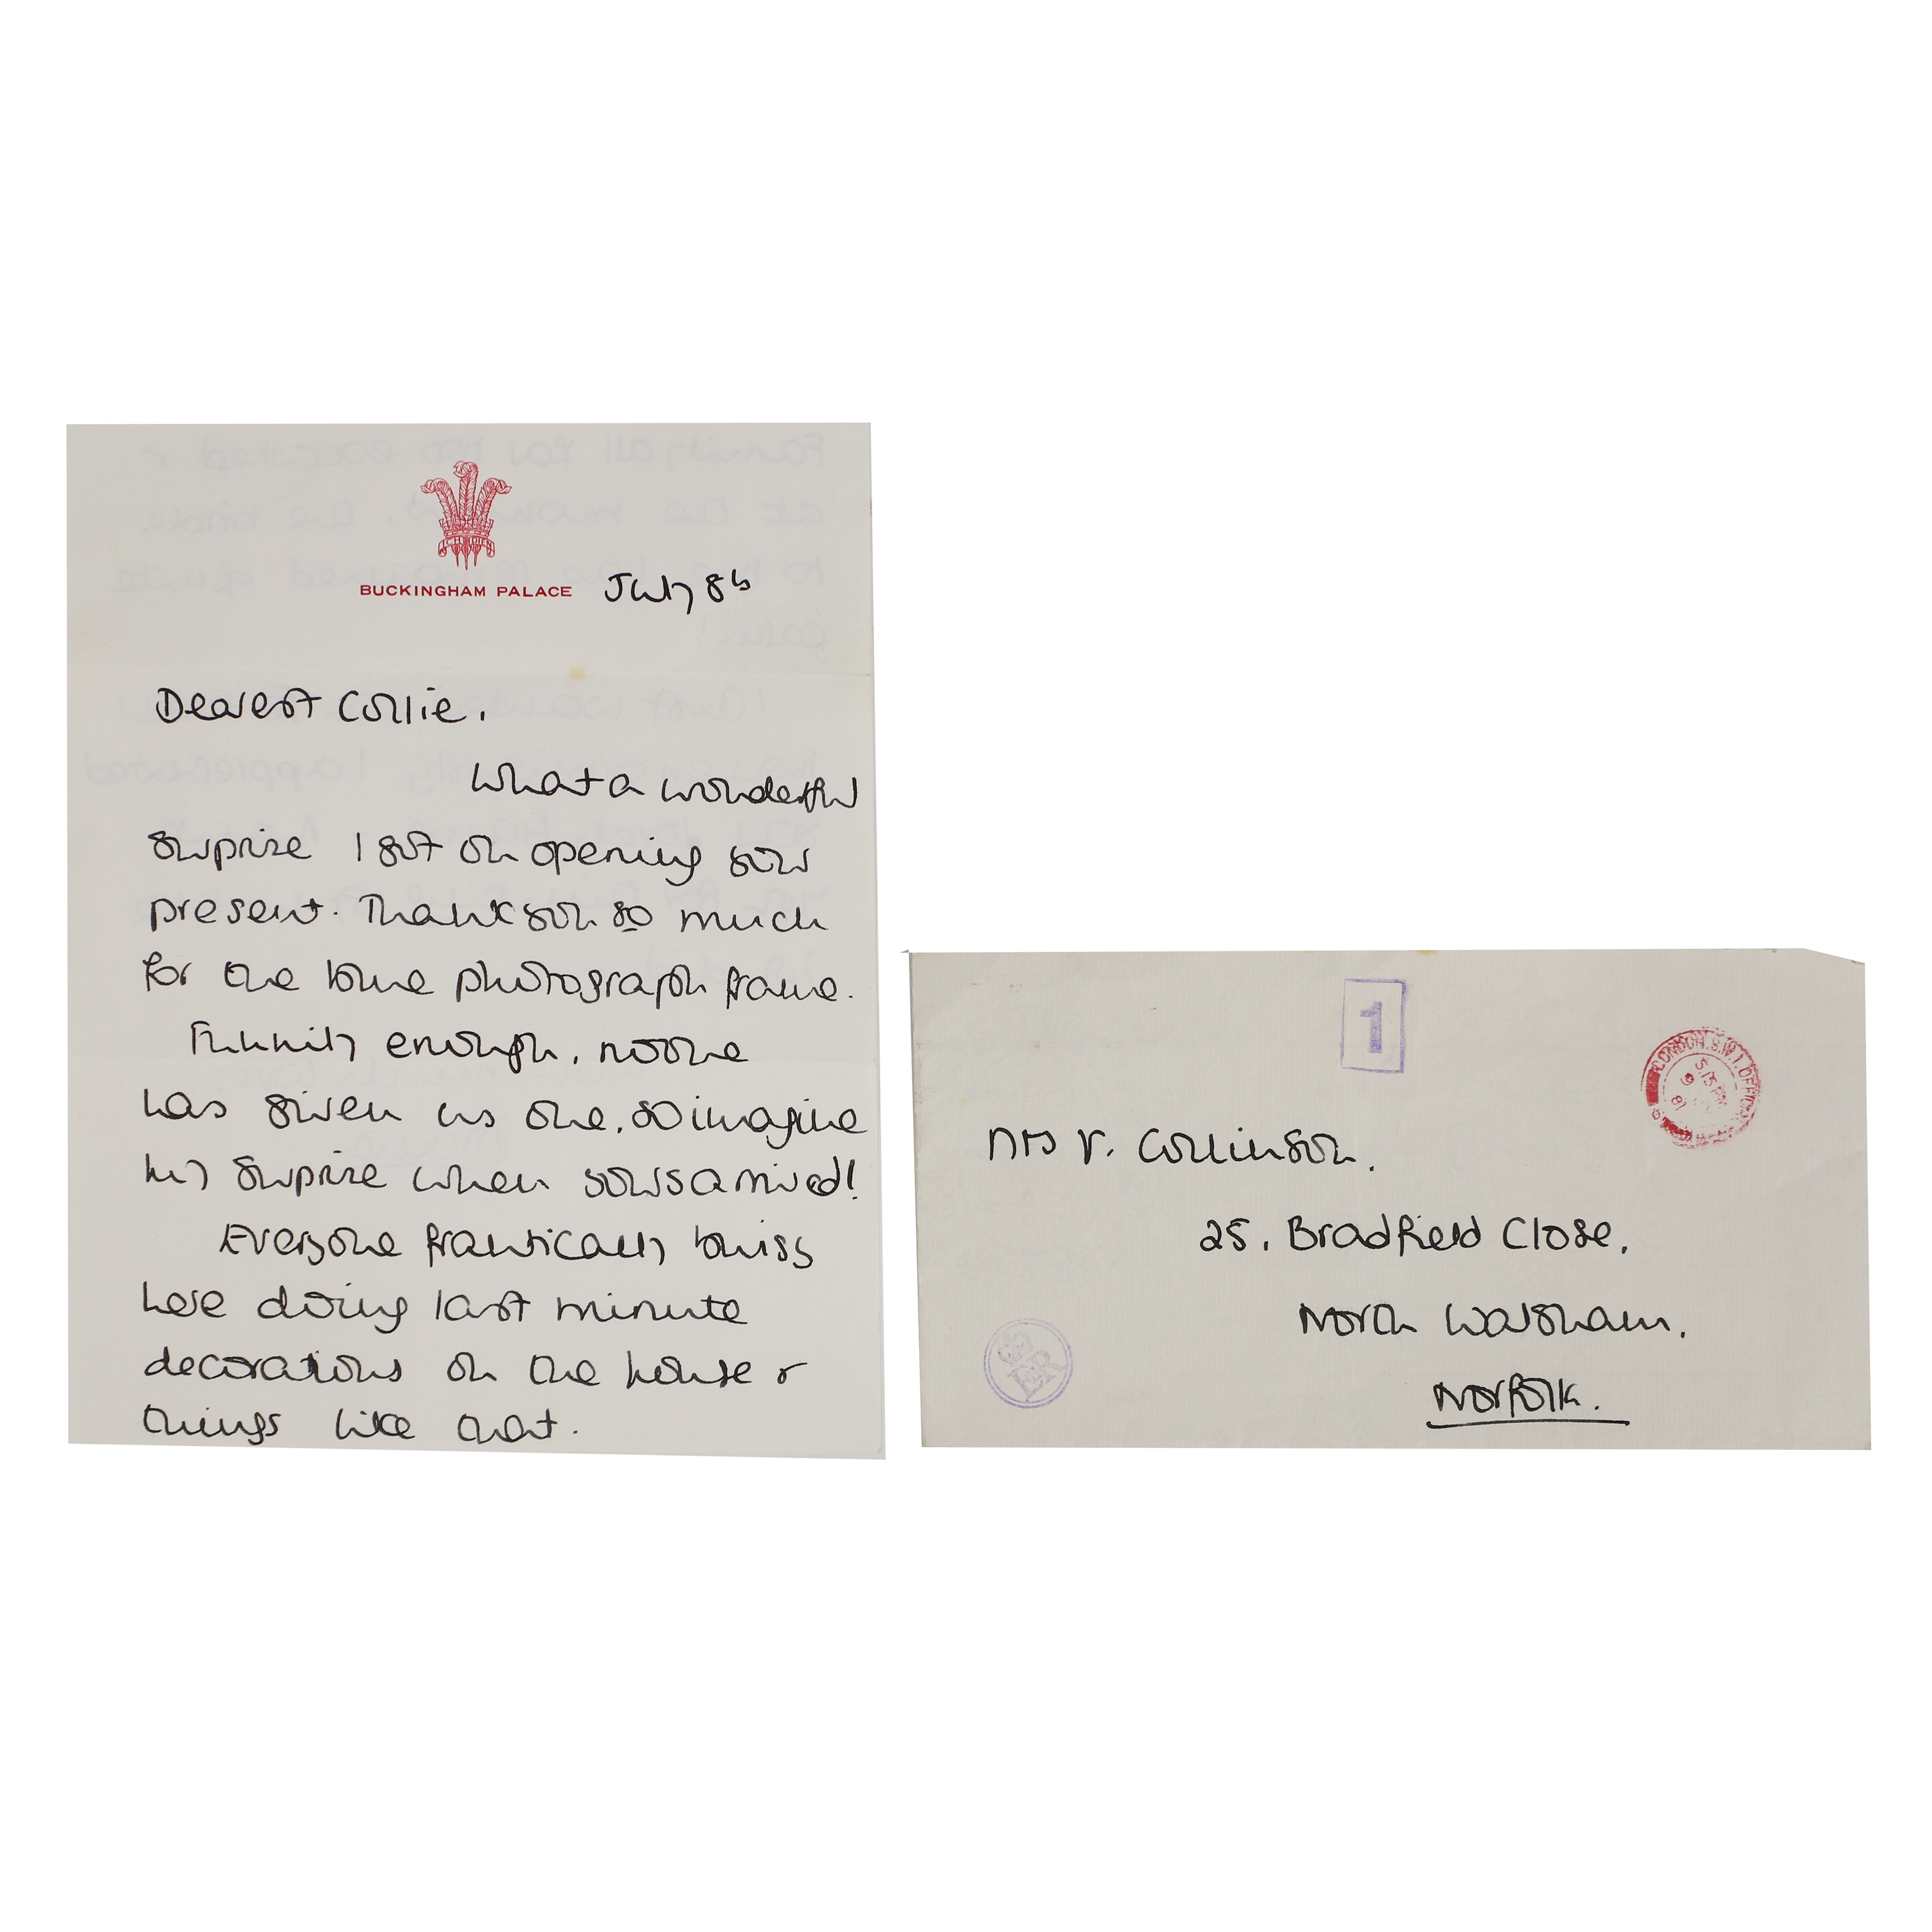 BUCKINGHAM PALACE July 8th
Dearest Collie,
What a wonderful
surprise I got on opening your
present. Thank you so much
for the blue photograph frame.
Funnily enough, noone
has given us one, so imagine
my surprise when yours arrived!
Everyone frantically busy
here doing last minute
decorations on the house &
things like that.
1
LONDON. S.W.1. OFFICE
5.15 PM
9
81
Mrs V. Collinson.
25, Bradfield Close,
North Walsham,
Norfolk.
ER